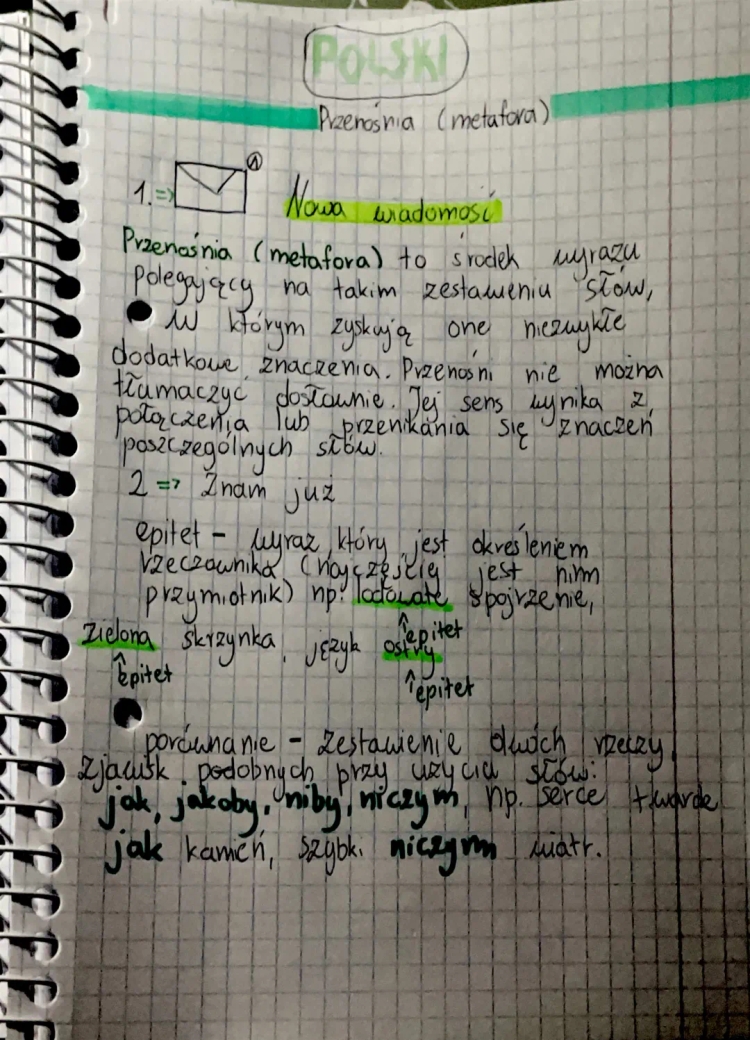 POLSKI
Przenośnia (metafora)
1. => 1 Nowa wiadomość
Przenośnia (metafora) to środek wyrazu
polegający na takim zestawieniu słów,
w którym zyskują one niezwykłe
dodatkowe znaczenia. Przenośni nie można
tłumaczyć dosłownie. Jej sens wynika z
połączenia lub przenikania się znaczeń
poszczególnych słów.
2 => Znam już
epitet - wyraz, który jest określeniem
rzeczownika (najczęściej jest nim
przymiotnik) np. lodowate spojrzenie,
↑epitet
zielona skrzynka, język ostry
↑epitet ↑epitet
porównanie - zestawienie dwóch rzeczy,
zjawisk podobnych przy użyciu słów:
jak, jakoby, niby, niczym, np. serce twarde
jak kamień, szybki niczym wiatr.